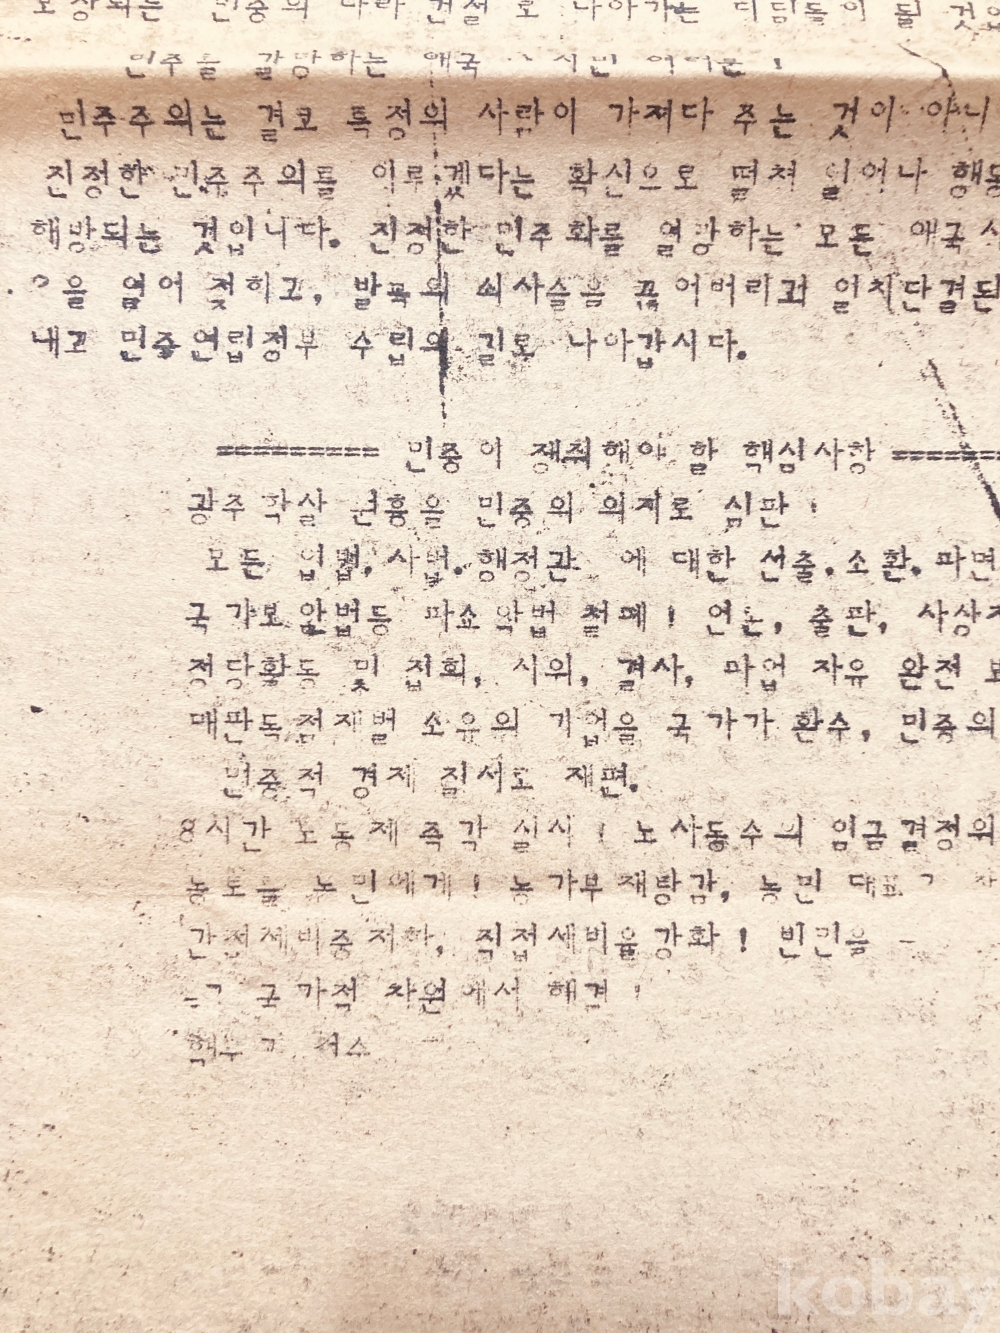 보장되는 민중의 나라 건설로 나아가는 디딤돌이 될 것
민주를 갈망하는 애국 시민 여러분 !
민주주의는 결코 특정의 사람이 가져다 주는 것이 아니
진정한 민주주의를 이루겠다는 확신으로 떨쳐 일어나 행동
해방되는 것입니다. 진정한 민주화를 열망하는 모든 애국
을 열어 젖히고, 발목의 쇠사슬을 끊어버리고 일치단결된
내고 민중연립정부 수립의 길로 나아갑시다.
========= 민중이 쟁취해야 할 핵심사항 ======
광주학살 원흉을 민중의 의지로 심판 !
모든 입법.사법.행정관 에 대한 선출.소환.파면
국가보안법등 파쇼악법 철폐 ! 언론, 출판, 사상
정당활동 및 집회, 시위, 결사, 파업 자유 완전
매판독점재벌 소유의 기업을 국가가 환수, 민중의
민중적 경제 질서로 재편.
8시간 노동제 즉각 실시 ! 노사동수의 임금결정의
농토를 농민에게 ! 농가부채탕감, 농민 대표
간접세비중저하, 직접세비율강화 ! 빈민을
국가적 차원에서 해결 !
kobay